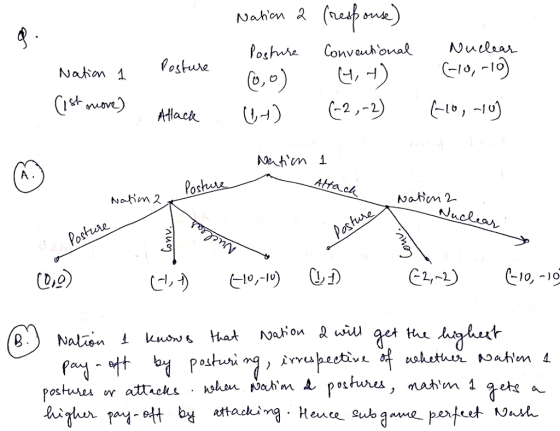 Q. Nation 2 (response)
Posture Conventional Nuclear
Nation 1 Posture (0,0) (-1,-1) (-10,-10)
(1st move) Attack (1,-1) (-2,-2) (-10,-10)
A. Nation 1
Posture Attack
Nation 2 Nation 2
Posture Conv. Nuclear Posture Conv. Nuclear
(0,0) (-1,-1) (-10,-10) (1,-1) (-2,-2) (-10,-10)
B. Nation 1 knows that Nation 2 will get the highest
pay-off by posturing, irrespective of whether Nation 1
postures or attacks. When Nation 2 postures, nation 1 gets a
higher pay-off by attacking. Hence subgame perfect Nash